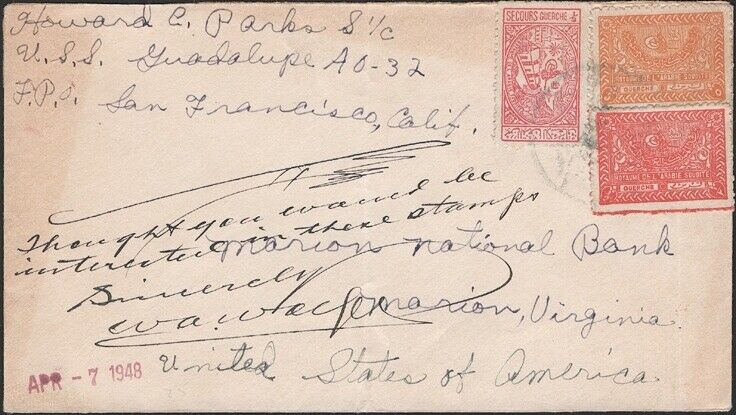 Howard C. Parks S 1/c
U.S.S. Guadalupe AO-32
F.P.O. San Francisco, Calif.
SECOURS GUERCHE 1/8
ROYAUME DE L'ARABIE SOUDITE
GUERCHE
ROYAUME DE L'ARABIE SOUDITE
GUERCHE
Thought you would be
interested in these stamps
Sincerely
Marion National Bank
Marion, Virginia.
United States of America
APR - 7 1948